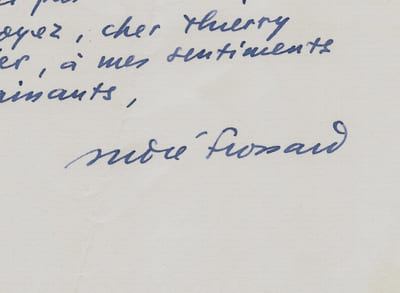 oyez, cher Thierry
er, à mes sentiments
aissants,
André Frossard